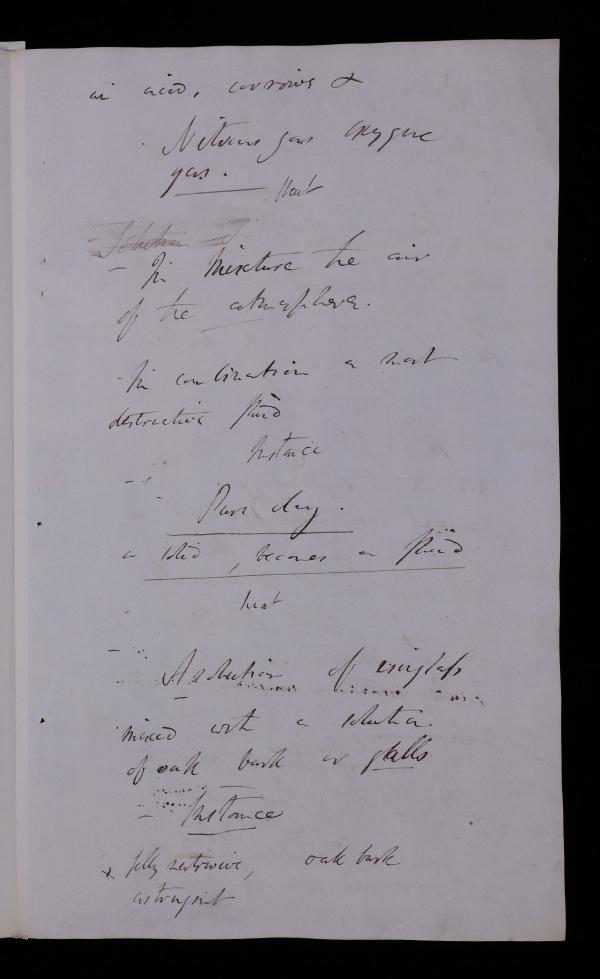 an acid, corrosive &
Nitrous gas oxygene
gas.
Heat
Solution
- In Mixture the air
of the atmosphere.
- In combination a most
destructive fluid
Instance
Pure clay.
a solid, becomes a fluid
heat
A solution of isinglass
mixed with a solution
of oak bark or galls
- Instance
x jelly nutritive, oak bark
astringent